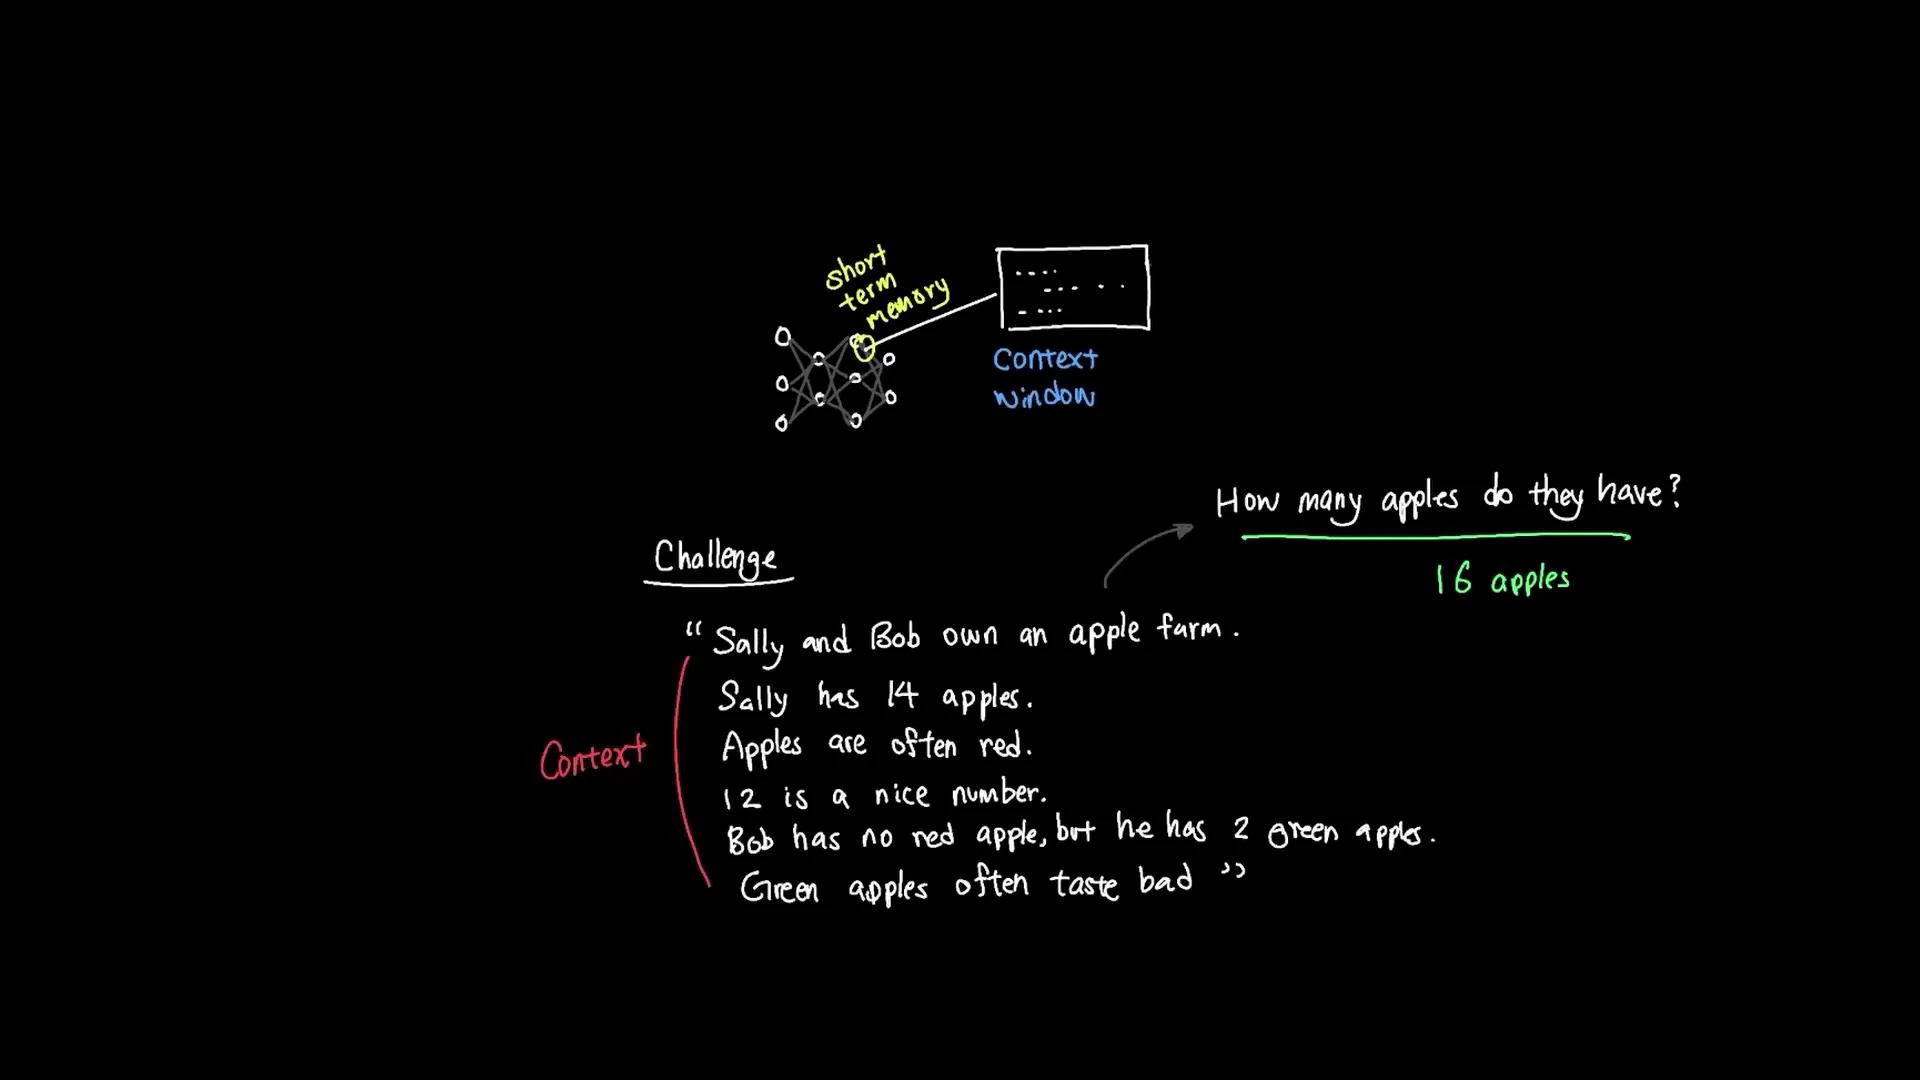 short
term
memory
Context
window
How many apples do they have?
16 apples
Challenge
“ Sally and Bob own an apple farm.
Sally has 14 apples.
Apples are often red.
12 is a nice number.
Bob has no red apple, but he has 2 green apples.
Green apples often taste bad ”
Context